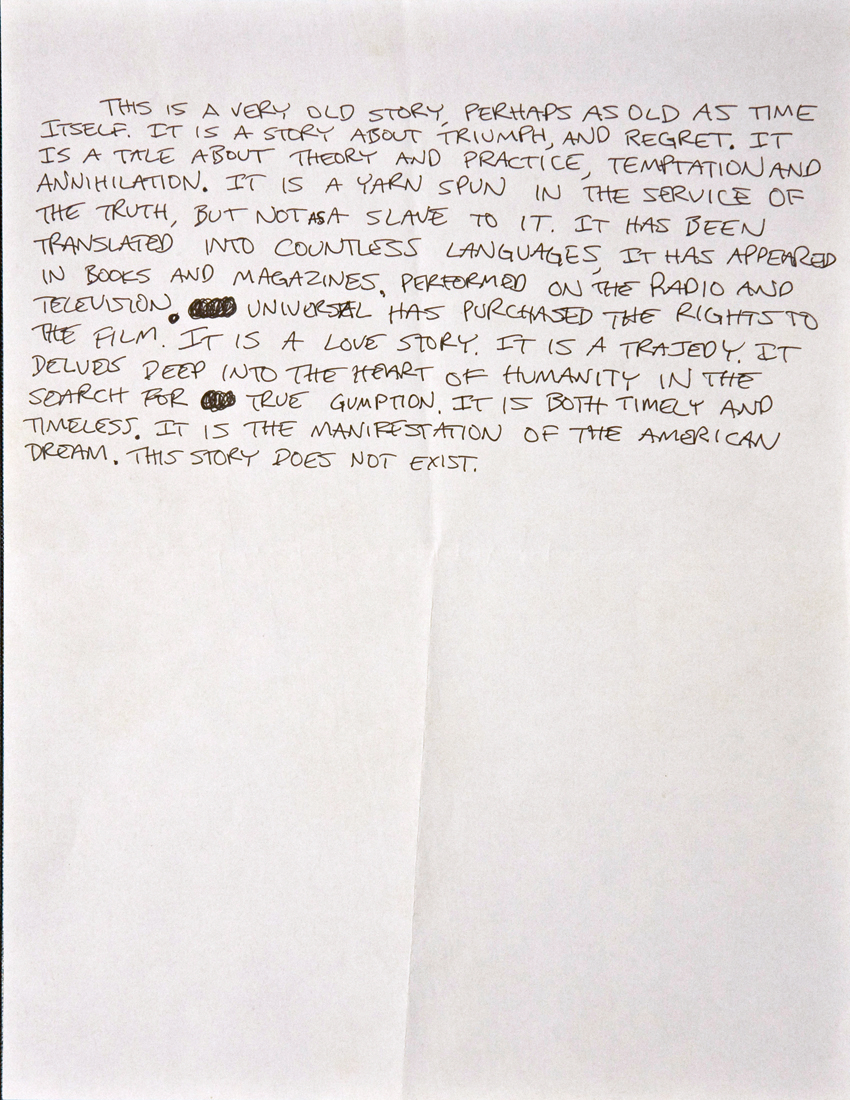 THIS IS A VERY OLD STORY, PERHAPS AS OLD AS TIME
ITSELF. IT IS A STORY ABOUT TRIUMPH, AND REGRET. IT
IS A TALE ABOUT THEORY AND PRACTICE, TEMPTATION AND
ANNIHILATION. IT IS A YARN SPUN IN THE SERVICE OF
THE TRUTH, BUT NOT AS A SLAVE TO IT. IT HAS BEEN
TRANSLATED INTO COUNTLESS LANGUAGES, IT HAS APPEARED
IN BOOKS AND MAGAZINES, PERFORMED ON THE RADIO AND
TELEVISION. UNIVERSAL HAS PURCHASED THE RIGHTS TO
THE FILM. IT IS A LOVE STORY. IT IS A TRAJEDY. IT
DELVES DEEP INTO THE HEART OF HUMANITY IN THE
SEARCH FOR TRUE GUMPTION. IT IS BOTH TIMELY AND
TIMELESS. IT IS THE MANIFESTATION OF THE AMERICAN
DREAM. THIS STORY DOES NOT EXIST.